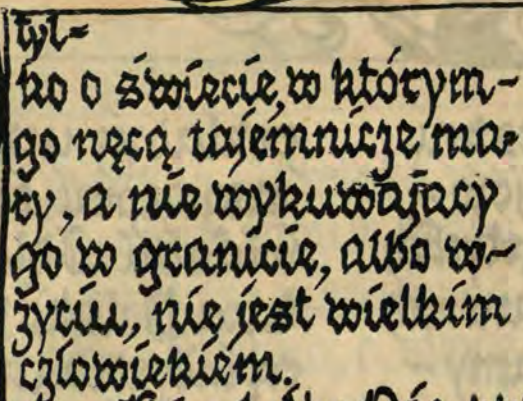 tyl=
ko o świecie, w którym-
go nęcą tajemnicze ma-
ry, a nie wykuwający
go w granicie, albo w-
życiu, nie jest wielkim
człowiekiem.